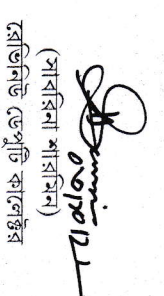 (সাবরিনা শারমিন)
রেভিনিউ ডেপুটি কালেক্টর